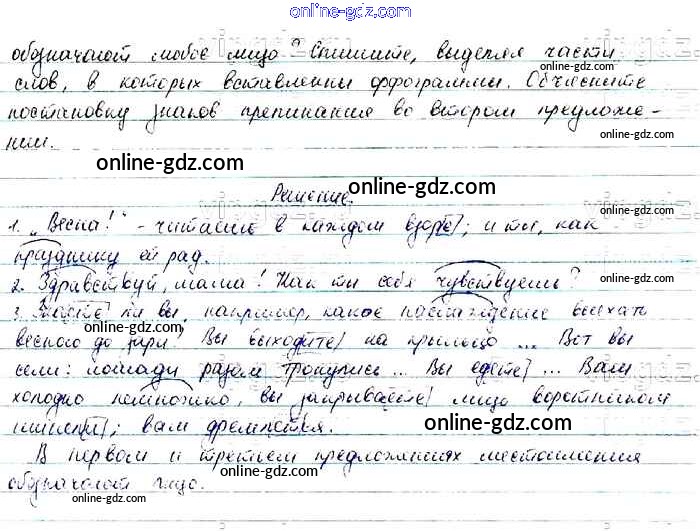 online-gdz.com
обозначают любое лицо? Спишите, выделяя части
слов, в которых вставлены орфограммы. Объясните
постановку знаков препинания во втором предложе-
нии.
online-gdz.com
Решение.
online-gdz.com
1. „Весна!" - читаешь в каждом взоре; и ты, как
празднику ей рад.
online-gdz.com
2. Здравствуй, мама! Как ты себя чувствуешь?
3. Знаете ли вы, например, какое наслаждение выехать
online-gdz.com
весной до зари? Вы выходите на крыльцо ... Вот вы
сели: лошади разом тронулись... Вы едете ... Вам
холодно немножко, вы закрываете лицо воротником
шинели; вам дремлется.
online-gdz.com
В первом и третьем предложениях местоимения
online-gdz.com
обозначают лицо.
online-gdz.com